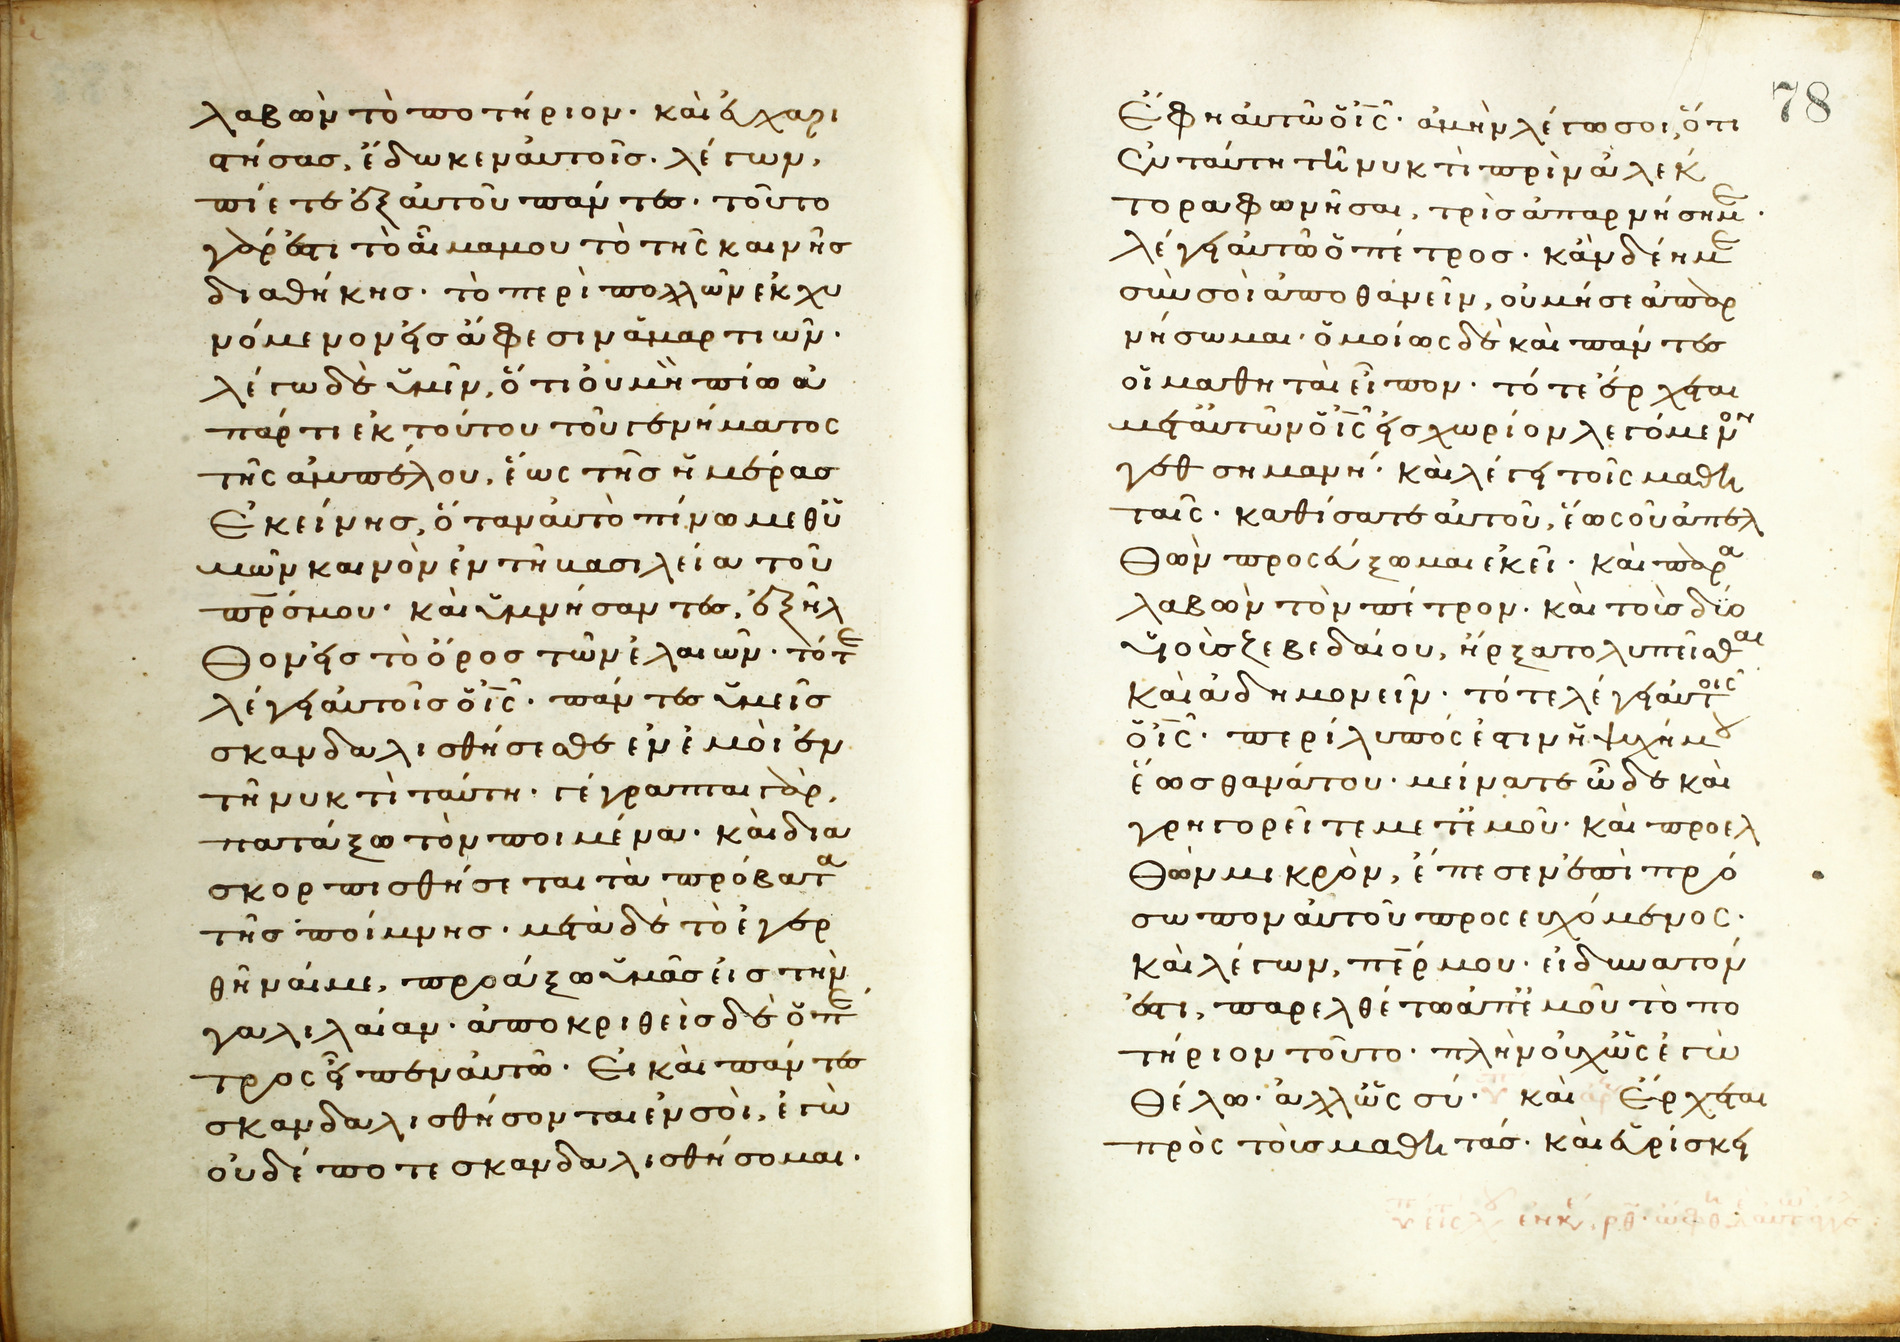 λαβὼν τὸ ποτήριον· καὶ εὐχαρι
στήσας, ἔδωκεν αὐτοῖς· λέγων,
πίετε ἐξ αὐτοῦ πάντες· τοῦτο
γάρ ἐστι τὸ αἷμα μου τὸ τῆς καινῆς
διαθήκης· τὸ περὶ πολλῶν ἐκχυ
νόμενον εἰς ἄφεσιν ἁμαρτιῶν·
λέγω δὲ ὑμῖν, ὅτι οὐ μὴ πίω ἀ
πάρτι ἐκ τούτου τοῦ γενήματος
τῆς ἀμπέλου, ἕως τῆς ἡμέρας
ἐκείνης, ὅταν αὐτὸ πίνω μεθ' ὑ
μῶν καινὸν ἐν τῆ βασιλεία τοῦ
πρ̅ς μου· καὶ ὑμνήσαντες, ἐξῆλ
θον εἰς τὸ ὄρος τῶν ἐλαιῶν· τότε
λέγει αὐτοῖς ὁ ι̅ς̅· πάντες ὑμεῖς
σκανδαλισθήσεσθε ἐν ἐμοὶ ἐν
τῆ νυκτὶ ταύτη· γέγραπται γὰρ,
πατάξω τὸν ποιμένα· καὶ δια
σκορπισθήσεται τὰ πρόβατα
τῆς ποίμνης· μετὰ δὲ τὸ ἐγερ
θῆναί με, προάξω ὑμᾶς εἰς τὴν
γαλιλαίαν· ἀποκριθεὶς δὲ ὁ πέ
τρος εἶπεν αὐτῶ· Εἰ καὶ πάντες
σκανδαλισθήσονται ἐν σοὶ, ἐγὼ
οὐδέποτε σκανδαλισθήσομαι·
78
Ἔφη αὐτῶ ὁ ι̅ς̅· ἀμὴν λέγω σοι, ὅτι
ἐν ταύτη τῆ νυκτὶ πρὶν ἀλέκ
τορα φωνῆσαι, τρὶς ἀπαρνήση με·
λέγει αὐτῶ ὁ πέτρος· κἂν δέη με
σὺν σοὶ ἀποθανεῖν, οὐ μή σε ἀπαρ
νήσωμαι· ὁμοίως δὲ καὶ πάντες
οἱ μαθηταὶ εἶπον· τότε ἔρχεται
μετ' αὐτῶν ὁ ι̅ς̅ εἰς χωρίον λεγόμενον
γεθσημανή· καὶ λέγει τοῖς μαθη
ταῖς· καθίσατε αὐτοῦ, ἕως οὗ ἀπελ
θὼν προσεύξωμαι ἐκεῖ· καὶ παρα
λαβὼν τὸν πέτρον· καὶ τοὺς δύο
υἱοὺς ζεβεδαίου, ἤρξατο λυπεῖσθαι
καὶ ἀδημονεῖν· τότε λέγει αὐτοῖς
ὁ ι̅ς̅· περίλυπός ἐστιν ἡ ψυχή μου
ἕως θανάτου· μείνατε ὧδε καὶ
γρηγορεῖτε μετ' ἐμοῦ· καὶ προελ
θὼν μικρὸν, ἔπεσεν ἐπὶ πρό
σωπον αὐτοῦ προσευχόμενος·
καὶ λέγων, π̅ερ μου· εἰ δυνατόν
ἐστι, παρελθέτω ἀπ' ἐμοῦ τὸ πο
τήριον τοῦτο· πλὴν οὐχ ὡς ἐγὼ
θέλω· ἀλλ' ὡς σύ· καὶ ἔρχεται
πρὸς τοὺς μαθητάς· καὶ εὑρίσκει